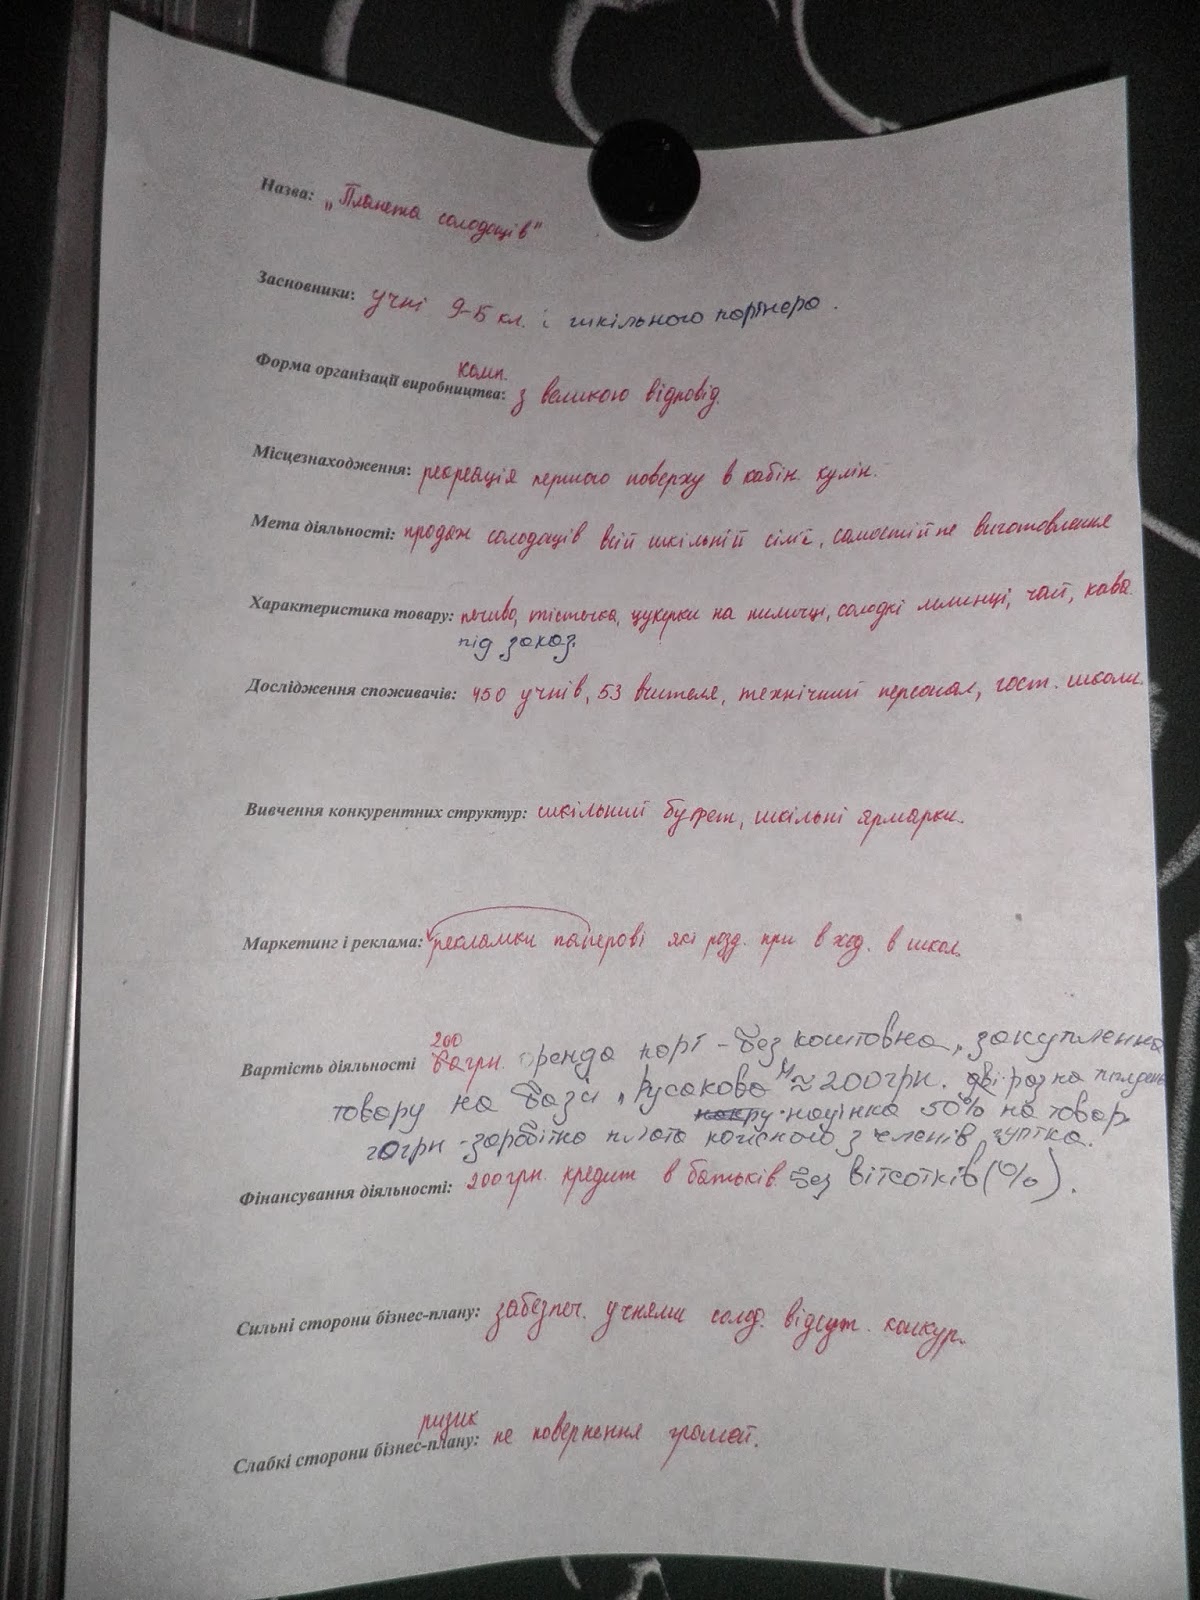 Назва: „Планета солодощів"
Засновники: учні 9-Б кл. і шкільного партнера.
комп.
Форма організації виробництва: з великою відповід.
Місцезнаходження: рекреація першого поверху в кабін. кулін.
Мета діяльності: продаж солодощів всій шкільній сім'ї, самостійне виготовлення
Характеристика товару: печиво, тістечка, цукерки на паличці, солодкі млинці, чай, кава
під заказ.
Дослідження споживачів: 450 учнів, 53 вчителя, технічний персонал, гост. школи.
Вивчення конкурентних структур: шкільний буфет, шкільні ярмарки.
Маркетинг і реклама: рекламки паперові які розд. при вход. в школ.
200
Вартість діяльності грн. оренда парт - без коштовна, закупленна
товару на базі „Русаково" ≈ 200 грн. раз на
націнка 50% на товар.
грн - заробітна плата кожного з членів гуртка.
Фінансування діяльності: 200 грн. кредит в батьків. без вітсотків (%).
Сильні сторони бізнес-плану: забезпеч. учнями солод. відсут. конкур.
ризик
Слабкі сторони бізнес-плану: не повернення грошей.